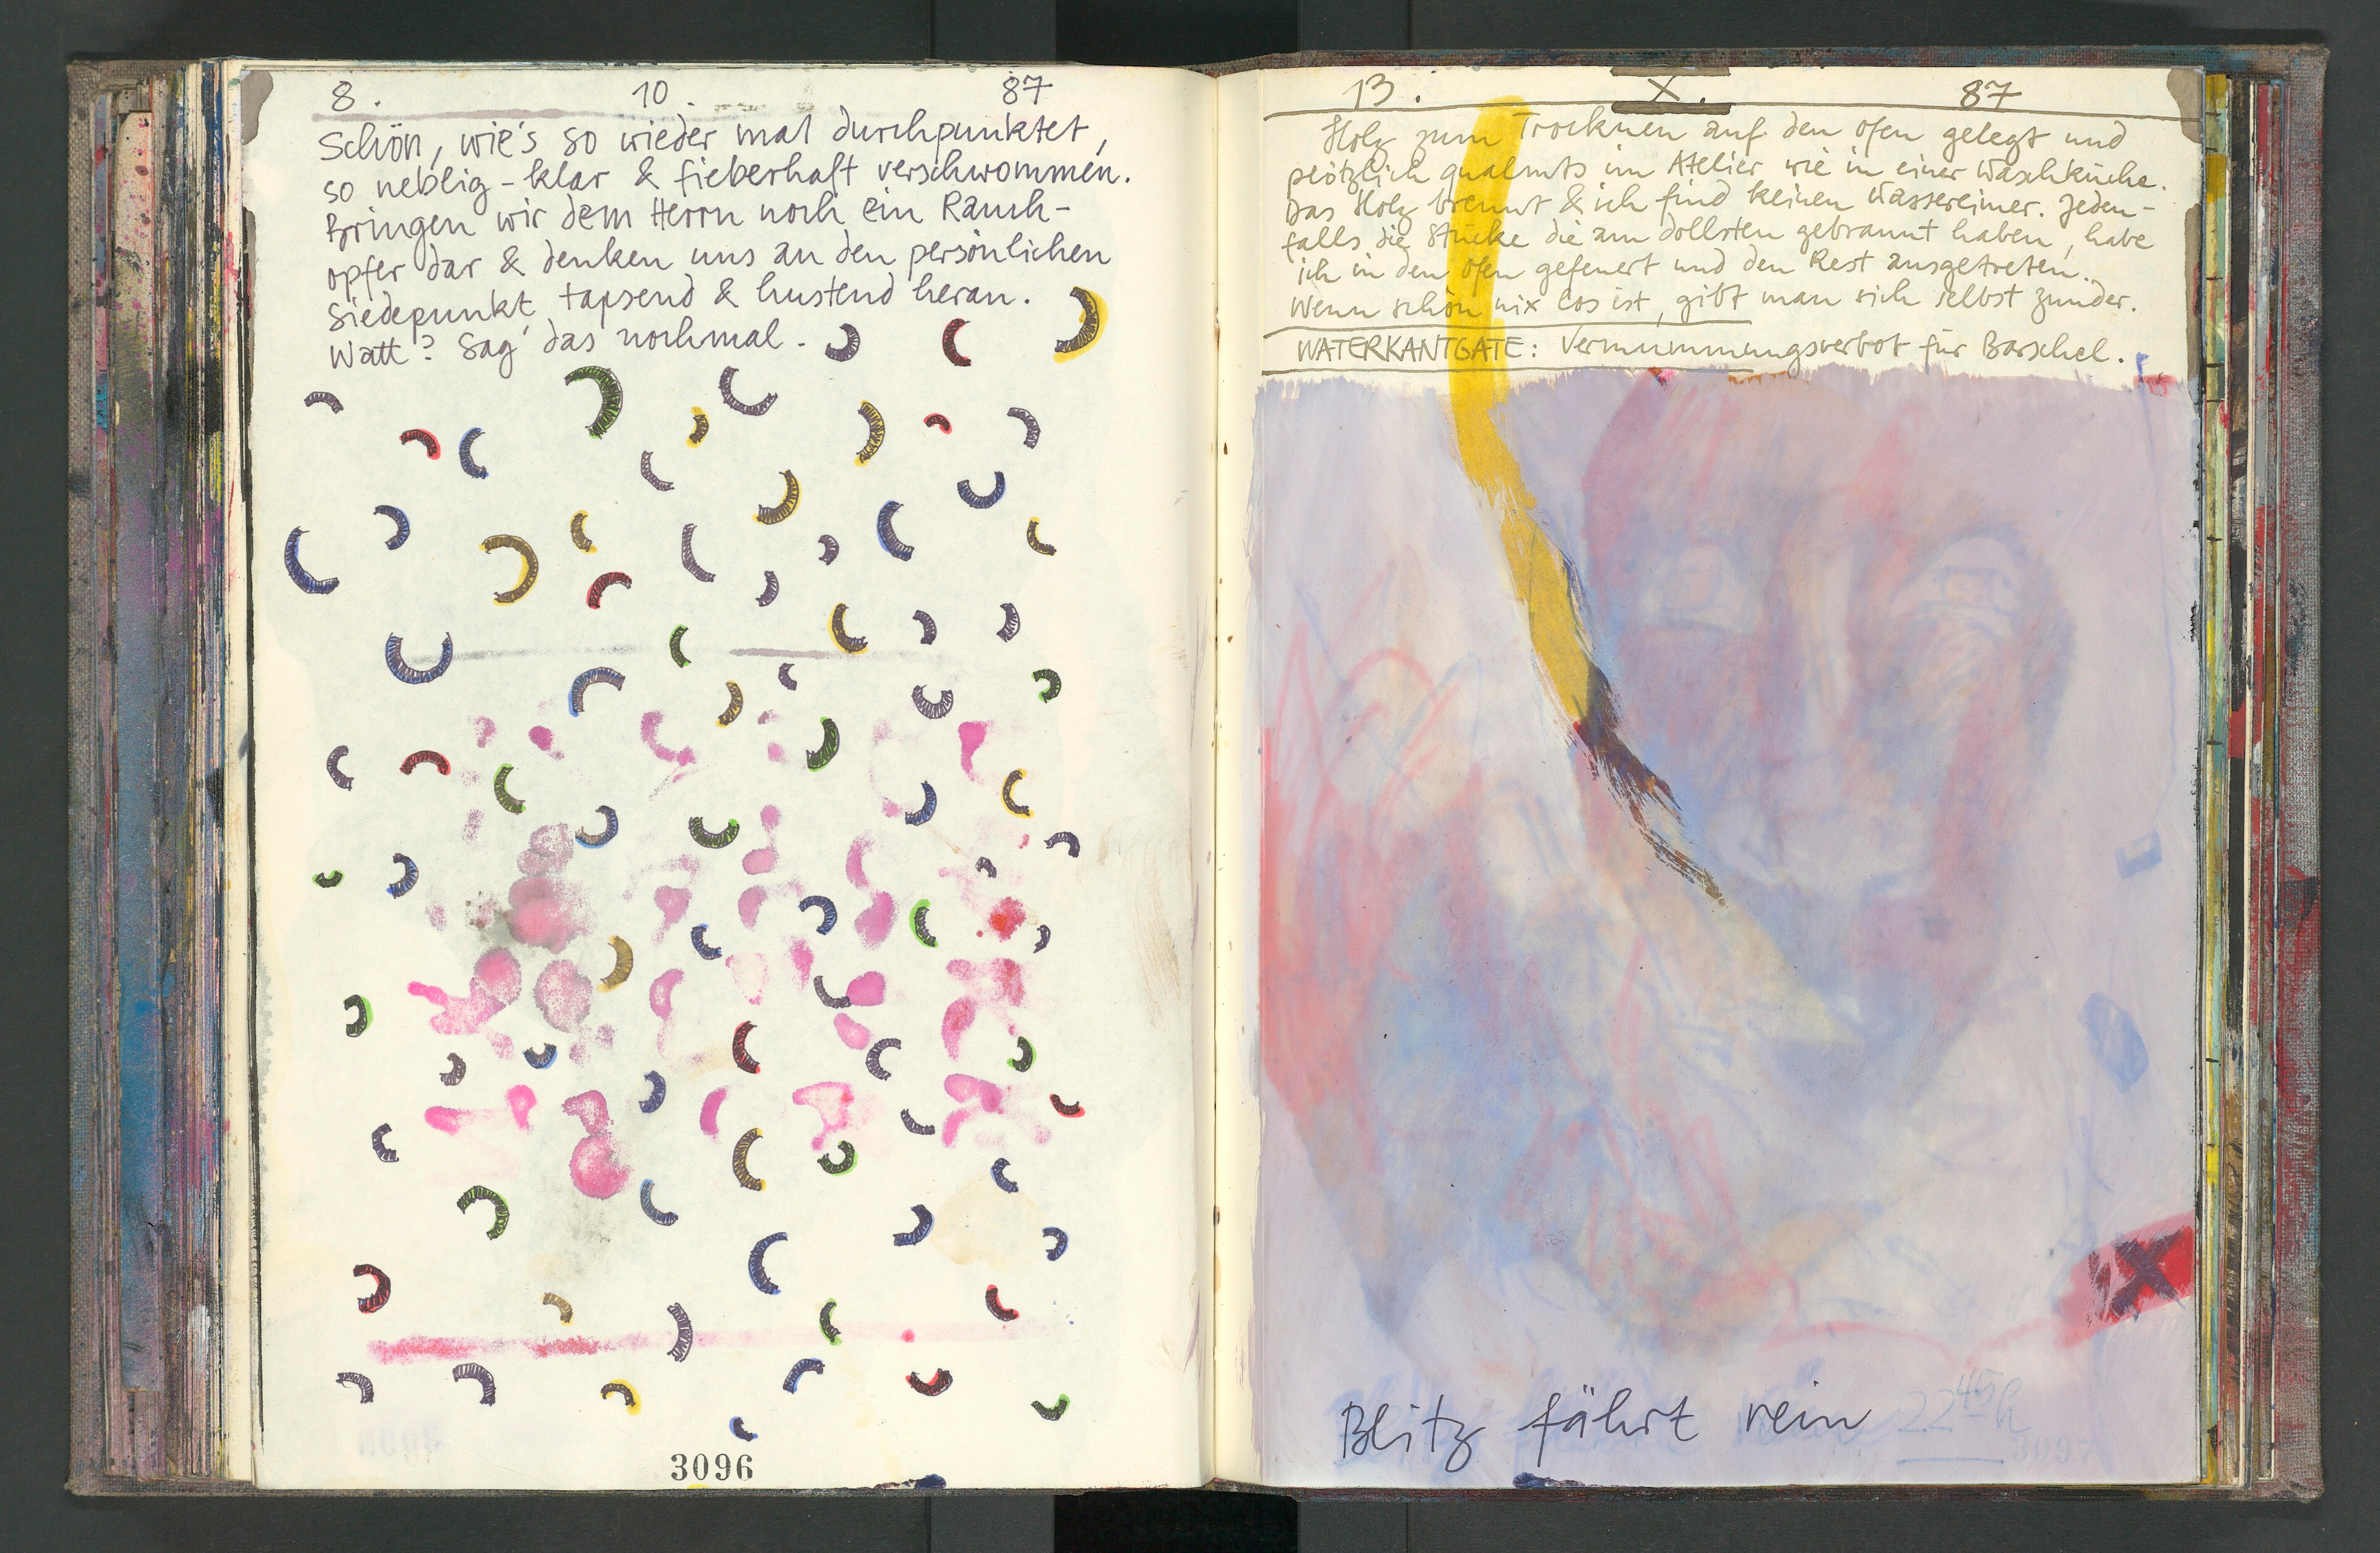 8. 10. 87
Schön, wie's so wieder mal durchpunktet,
so neblig-klar & fieberhaft verschwommen.
Bringen wir dem Herrn noch ein Rauch-
opfer dar & denken uns an den persönlichen
Siedepunkt, tapsend & hustend heran.
Watt? Sag' das nochmal.
3096
13. X. 87
Holz zum Trocknen auf den Ofen gelegt und
plötzlich qualmts im Atelier wie in einer Waschküche.
Das Holz brennt & ich find keinen Wassereimer. Jeden-
falls die Stücke die am dollsten gebrannt haben, habe
ich in den Ofen gefeuert und den Rest ausgetreten.
Wenn schon nix los ist, gibt man sich selbst zunder.
WATERKANTGATE: Vermummungsverbot für Barschel.
X
Blitz fährt rein 22 45 h
3097